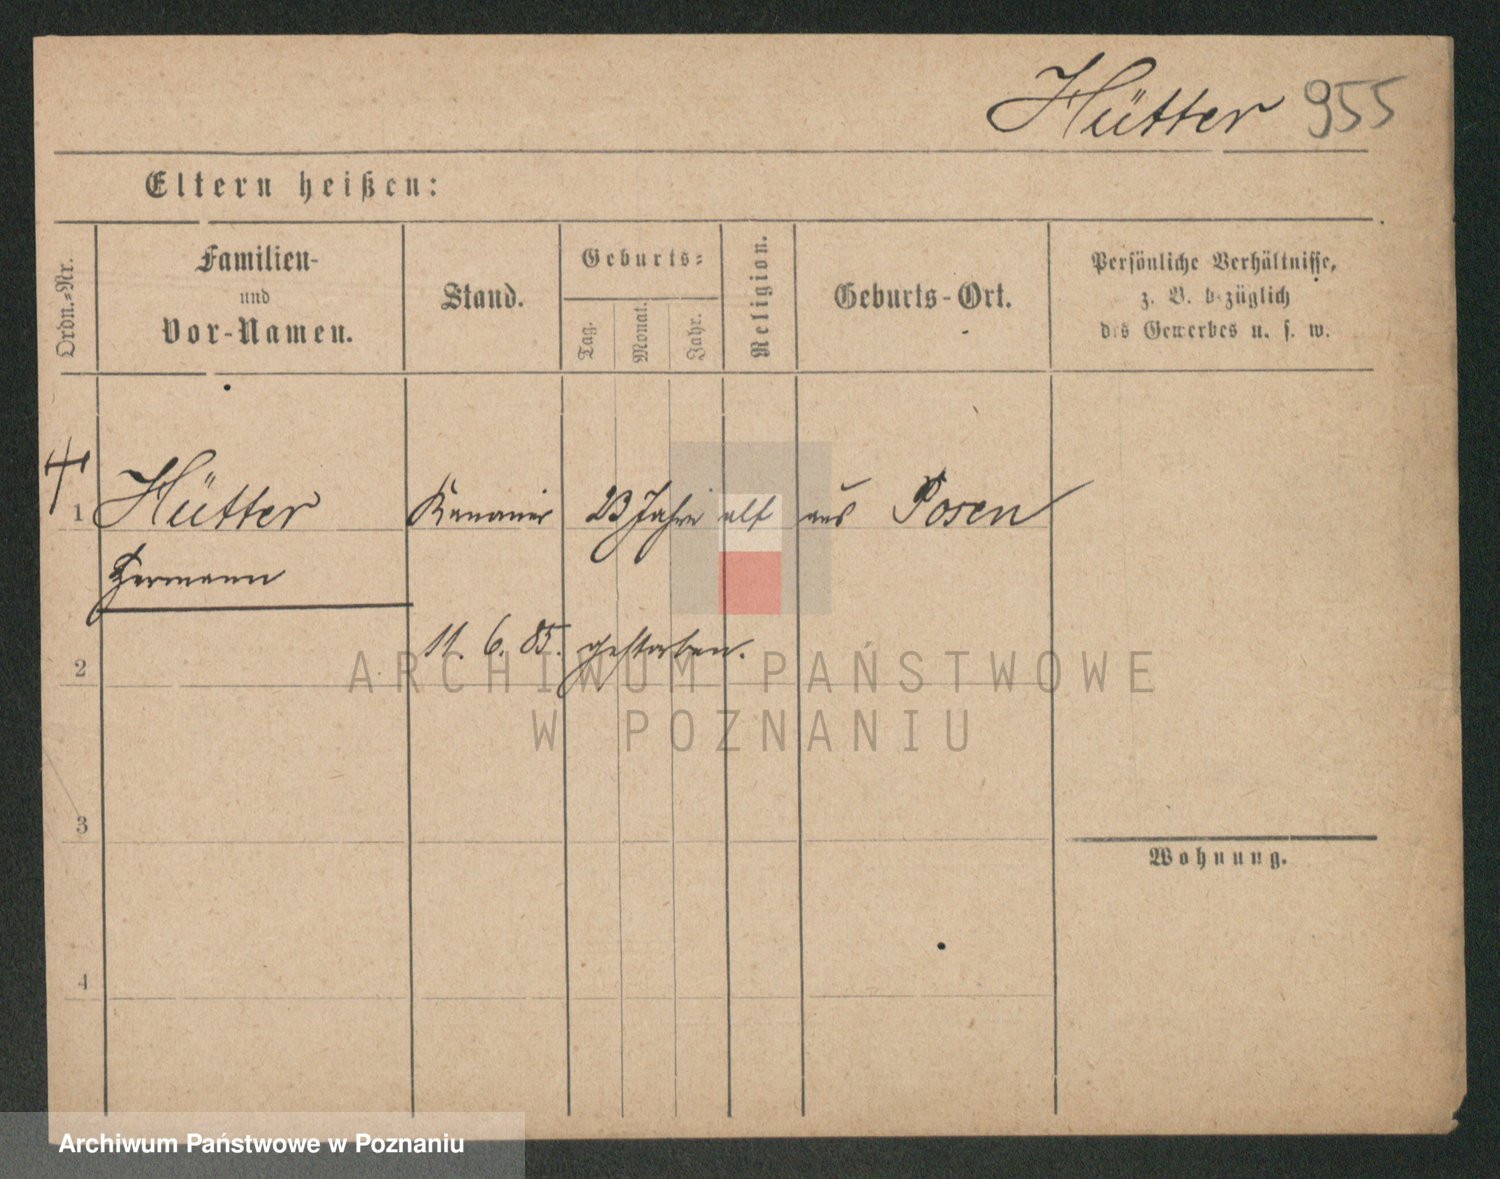 Hütter 955
Eltern heißen:
Ordn.=Nr.
Familien-
und
Vor-Namen.
Stand.
Geburts=
Tag.
Monat.
Jahr.
Religion.
Geburts-Ort.
Persönliche Verhältnisse,
z. B. bezüglich
des Gewerbes u. s. w.
1 Hütter Kanonier 23 Jahre alt aus Posen
Hermann
11. 6. 85. gestorben.
2
3
4
Wohnung.
ARCHIWUM PAŃSTWOWE
W POZNANIU
Archiwum Państwowe w Poznaniu